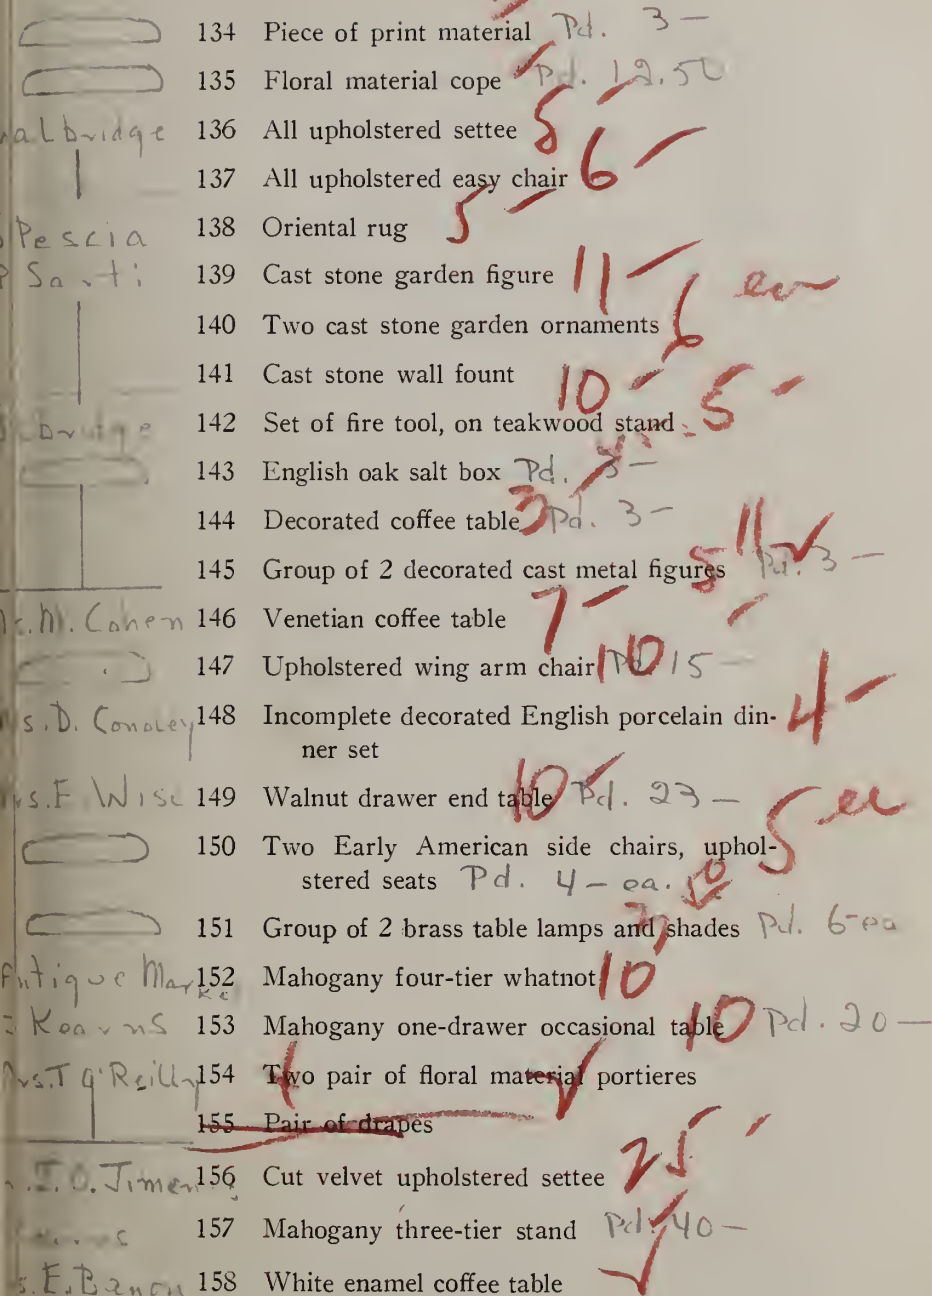 134 Piece of print material Pd. 3 —
135 Floral material cope Pd. 12.50
albridge 136 All upholstered settee 8 —
137 All upholstered easy chair 6 —
Pescia 138 Oriental rug 5 —
Santi 139 Cast stone garden figure 11 —
140 Two cast stone garden ornaments 6
141 Cast stone wall fount 10 —
bridge 142 Set of fire tool, on teakwood stand 5 —
143 English oak salt box Pd. 3 —
144 Decorated coffee table 3 Pd. 3 —
145 Group of 2 decorated cast metal figures Pd. 3 —
M. Cohen 146 Venetian coffee table 7 —
147 Upholstered wing arm chair 10 Pd 15 —
s. D. 148 Incomplete decorated English porcelain din- 4 —
ner set
s. F. Wise 149 Walnut drawer end table 10 Pd. 23 —
150 Two Early American side chairs, uphol- 5
stered seats Pd. 4 — ea.
151 Group of 2 brass table lamps and shades Pd. 6 — ea
Antique Mar 152 Mahogany four-tier whatnot 10
Kearns 153 Mahogany one-drawer occasional table 10 Pd. 20 —
O'Reilly 154 Two pair of floral material portieres
155 Pair of drapes
156 Cut velvet upholstered settee 25 —
157 Mahogany three-tier stand Pd. 40 —
s. E. 158 White enamel coffee table